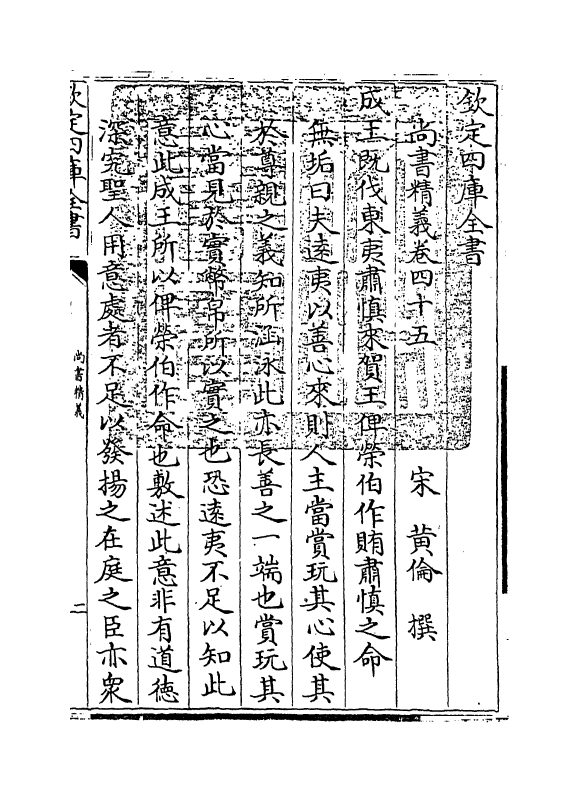 欽定四庫全書
尚書精義卷四十五
宋 黄倫 撰
成王既伐東夷肅慎來賀王俾榮伯作賄肅慎之命
無垢曰夫遠夷以善心來則人主當賞玩其心使其
於尊親之義知所涵泳此亦長善之一端也賞玩其
心當見於實幣帛所以實之也恐遠夷不足以知此
意此成王所以俾榮伯作命也敷述此意非有道徳
深究聖人用意處者不足以發揚之在庭之臣亦衆
欽定四庫全書
尚書精義